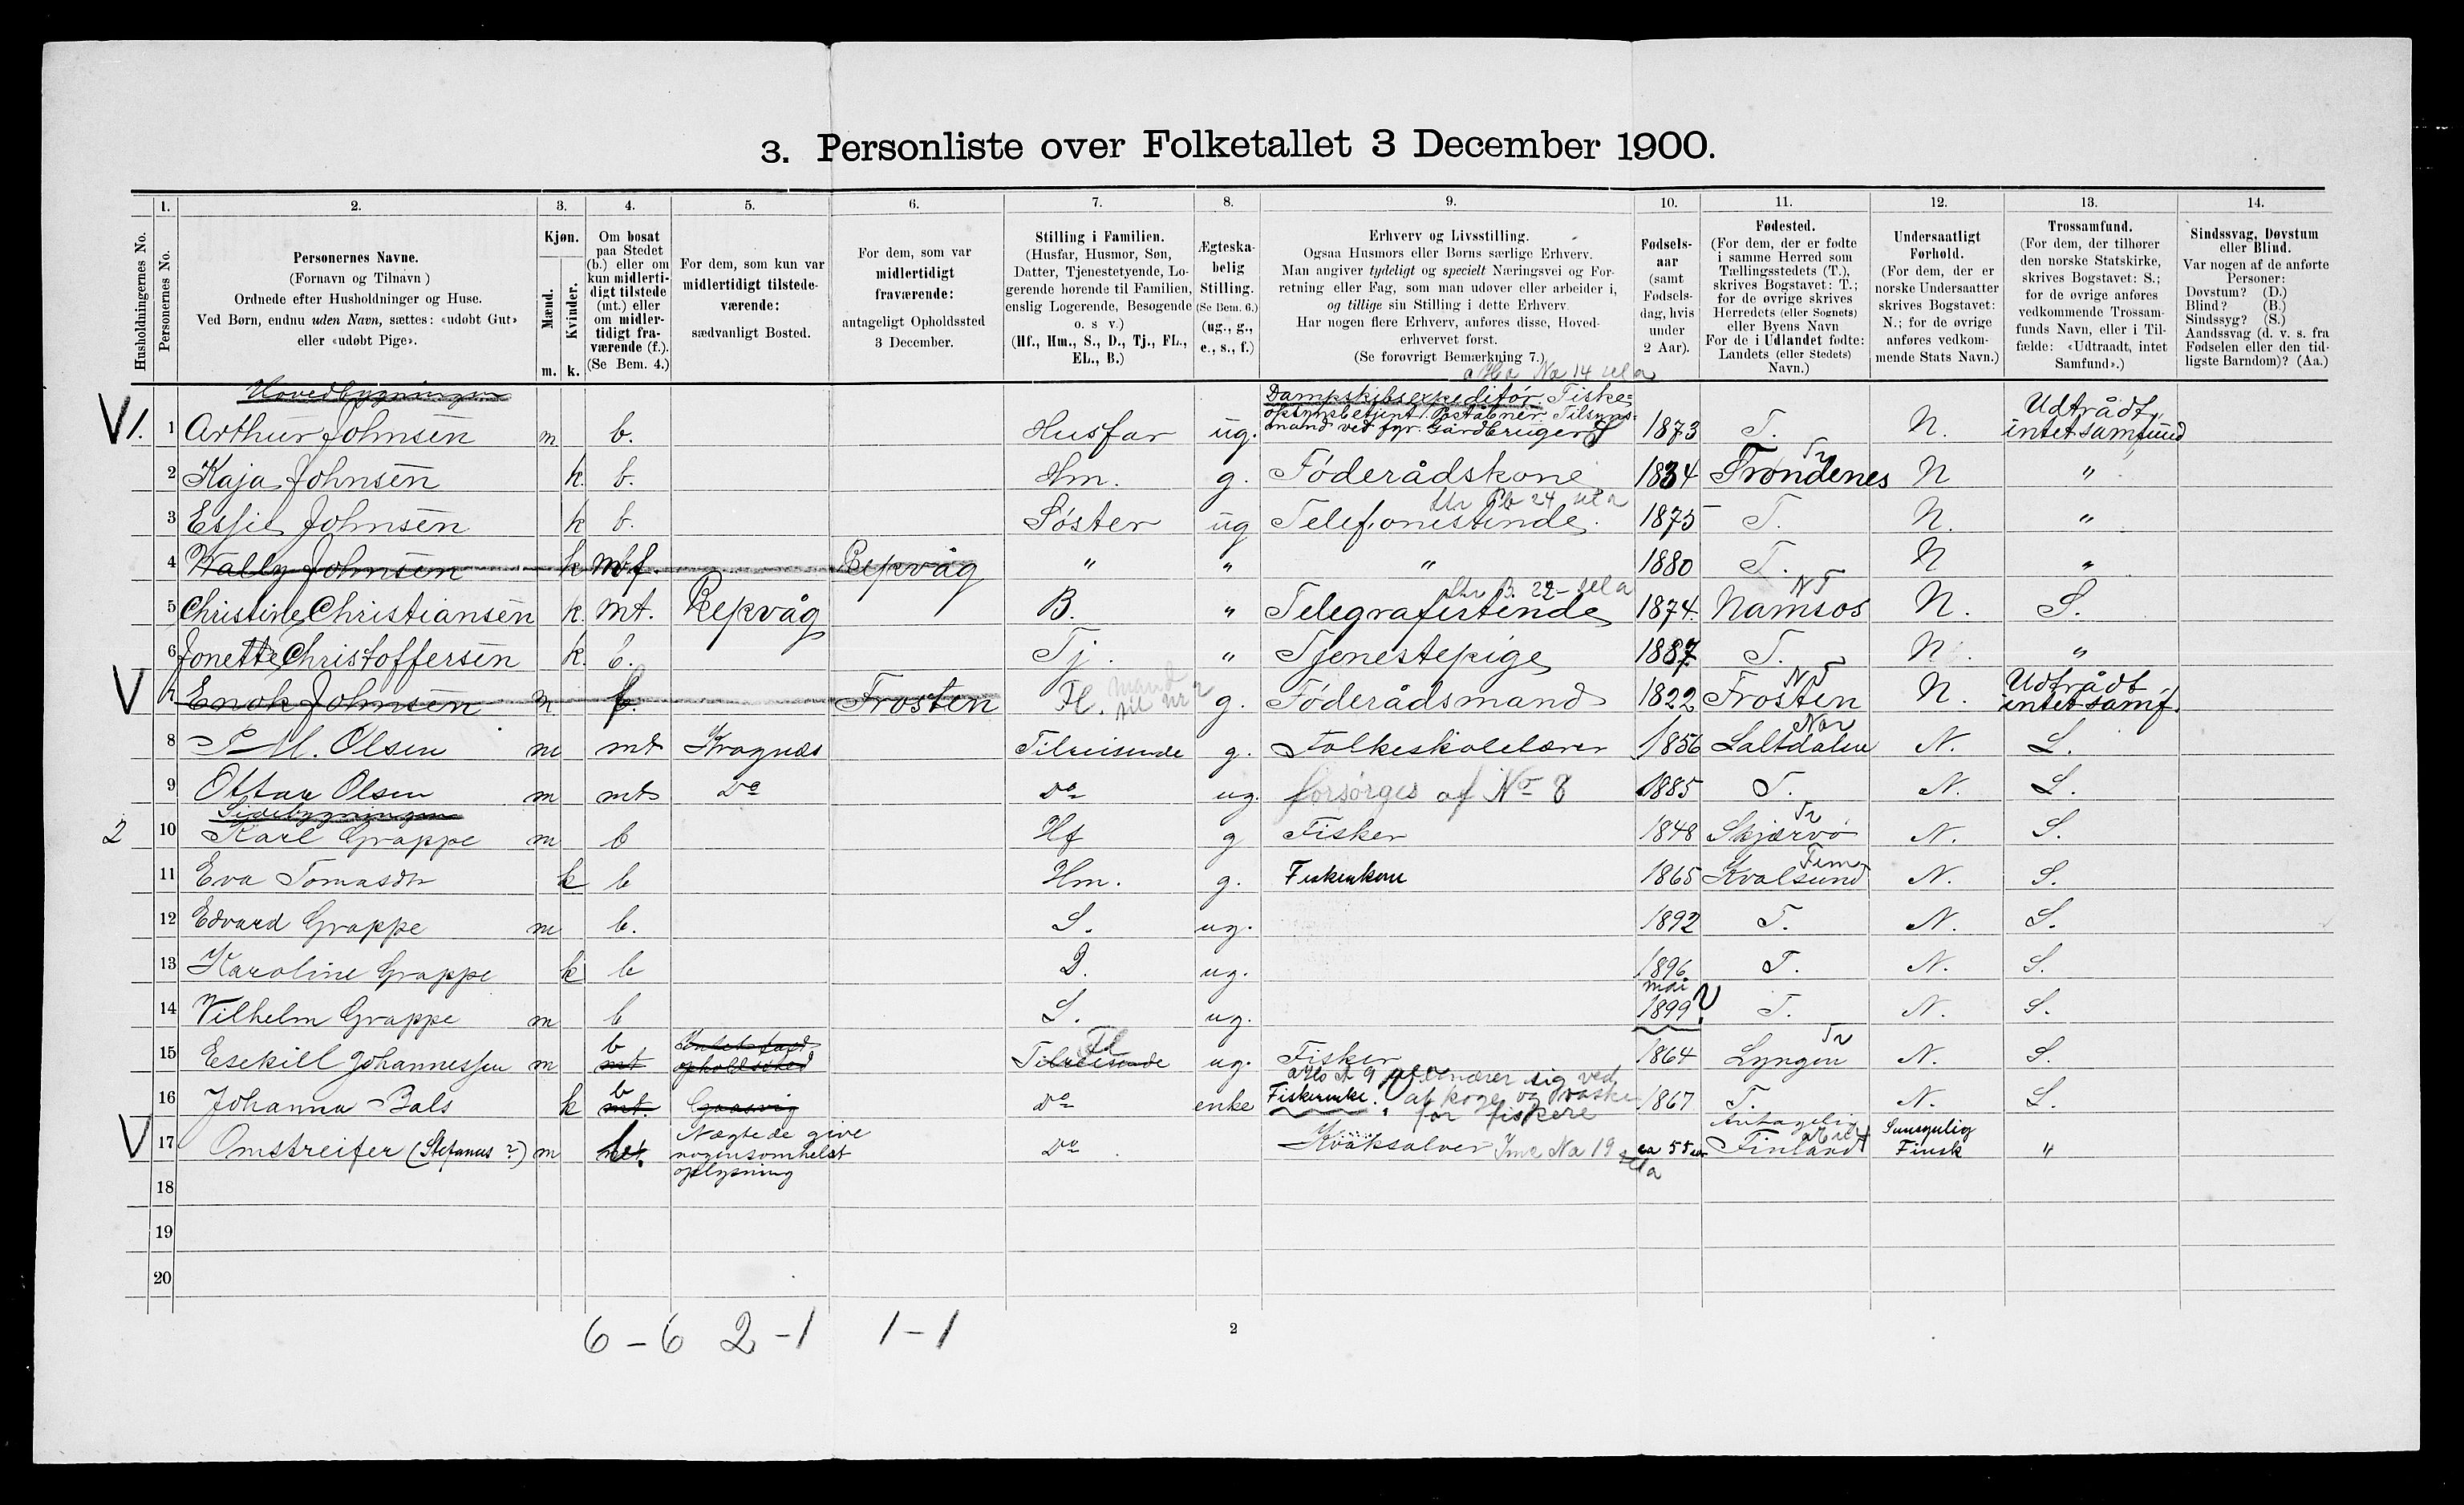 3. Personliste over Folketallet 3 December 1900.
1. 2. 3. 4. 5. 6. 7. 8. 9. 10. 11. 12. 13. 14.
Husholdningernes No.
Personernes No.
Personernes Navne.
(Fornavn og Tilnavn)
Ordnede efter Husholdninger og Huse.
Ved Børn, endnu uden Navn, sættes: «udøbt Gut»
eller «udøbt Pige».
Kjøn.
Mænd.
Kvinder.
m. k.
Om bosat
paa Stedet
(b.) eller om
kun midlerti-
digt tilstede
(mt.) eller
om midler-
tidigt fra-
værende (f.).
(Se Bem. 4.)
For dem, som kun var
midlertidigt tilstede-
værende:
sædvanligt Bosted.
For dem, som var
midlertidigt
fraværende:
antageligt Opholdssted
3 December.
Stilling i Familien.
(Husfar, Husmor, Søn,
Datter, Tjenestetyende, Lo-
gerende hørende til Familien,
enslig Logerende, Besøgende
o. s v.)
(Hf., Hm., S., D., Tj., FL.,
EL., B.)
Ægteska-
belig
Stilling.
(Se Bem. 6.)
(ug., g.,
e., s., f.)
Erhverv og Livsstilling.
Ogsaa Husmors eller Børns særlige Erhverv.
Man angiver tydeligt og specielt Næringsvei og For-
retning eller Fag, som man udøver eller arbeider i,
og tillige sin Stilling i dette Erhverv.
Har nogen flere Erhverv, anføres disse, Hoved-
erhvervet først.
(Se forøvrigt Bemærkning 7.)
Fødsels-
aar
(samt
Fødsels-
dag, hvis
under
2 Aar).
Fødested.
(For dem, der er fødte
i samme Herred som
Tællingsstedets (T.),
skrives Bogstavet: T.;
for de øvrige skrives
Herredets (eller Sognets)
eller Byens Navn
For de i Udlandet fødte:
Landets (eller Stedets)
Navn.)
Undersaatligt
Forhold.
(For dem, der er
norske Undersaatter
skrives Bogstavet:
N.; for de øvrige
anføres vedkom-
mende Stats Navn.)
Trossamfund.
(For dem, der tilhører
den norske Statskirke,
skrives Bogstavet: S.;
for de øvrige anføres
vedkommende Trossam-
funds Navn, eller i Til-
fælde: «Udtraadt, intet
Samfund».)
Sindssvag, Døvstum
eller Blind.
Var nogen af de anførte
Personer:
Døvstum? (D.)
Blind? (B.)
Sindssyg? (S.)
Aandssvag (d. v. s. fra
Fødselen eller den tid-
ligste Barndom)? (Aa.)
Hovedbygningen
Dampskibsexpeditør. Fiske-
opsynsbetjent. Postabner. Tilsyns-
mand ved fyr. Gårdbruger S
V 1. 1 Arthur Johnsen m b. Husfar ug. 1873 T. N. Udtrådt, intet samfund
2 Kaja Johnsen k. b. Hm. g. Føderådskone 1834 Trondenes Tr N "
3 Essie Johnsen k b. Søster ug Telefonistinde. 1875 T. N. "
4 Wally Johnsen k mt f. Repvåg " " " 1880 T. N "
5 Christine Christiansen k. mt. Repvåg B. " Telegrafistinde 1874 Namsos NT N. S.
6 Jonette Christoffersen k. b. Tj. " Tjenestepige 1887 T. N. "
V 7 Enok Johnsen m. f. Frosten Fl. mand til nr 2 g. Føderådsmand 1822 Frosten NT N. Udtrådt intet samf.
8 P. M. Olsen m mt Kragnæs Tilreisende g. Folkeskolelærer 1856 Saltdalen Nor N. S.
9 Ottar Olsen m mt do do ug. forsørges af No 8 1885 T. N. S.
Sidebygningen
2 10 Karl Grappe m b Hf g Fisker 1848 Skjærvø Tr N. S.
11 Eva Tomasdtr k b Hm. g. Fiskerkone 1865 Kvalsund Finm N. S.
12 Edvard Grappe m b. S. ug. 1892 T. N. S.
13 Karoline Grappe k b D. ug. 1896 T. N. S.
14 Vilhelm Grappe m b S. ug. mai 1899 ? T. N. S.
15 Esekill Johannessen m b mt opholdssted Tilreisende Fl ug. Fisker 1864 Lyngen Tr N. S.
16 Johanna Bals k b mt. Gaasvig do enke Fiskerenke. ernærer sig ved at koge og vaske for fiskere 1867 T. N. S.
V 17 Omstreifer (Stefanus?) m mt. Nægtede give nogensomhelst oplysning do Kvaksalver ca 55 aar Antagelig Finland Sansynlig Finsk "
18
19
20
6 - 6 2 - 1 1 - 1
2